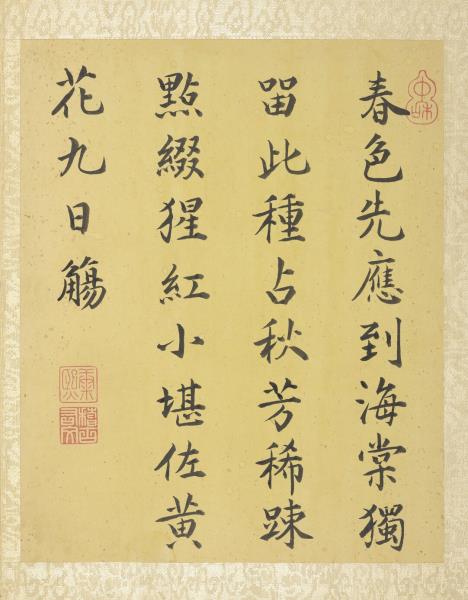 中和
春色先應到海棠獨
留此種占秋芳稀踈
點綴猩紅小堪佐黃
花九日觴
康熙